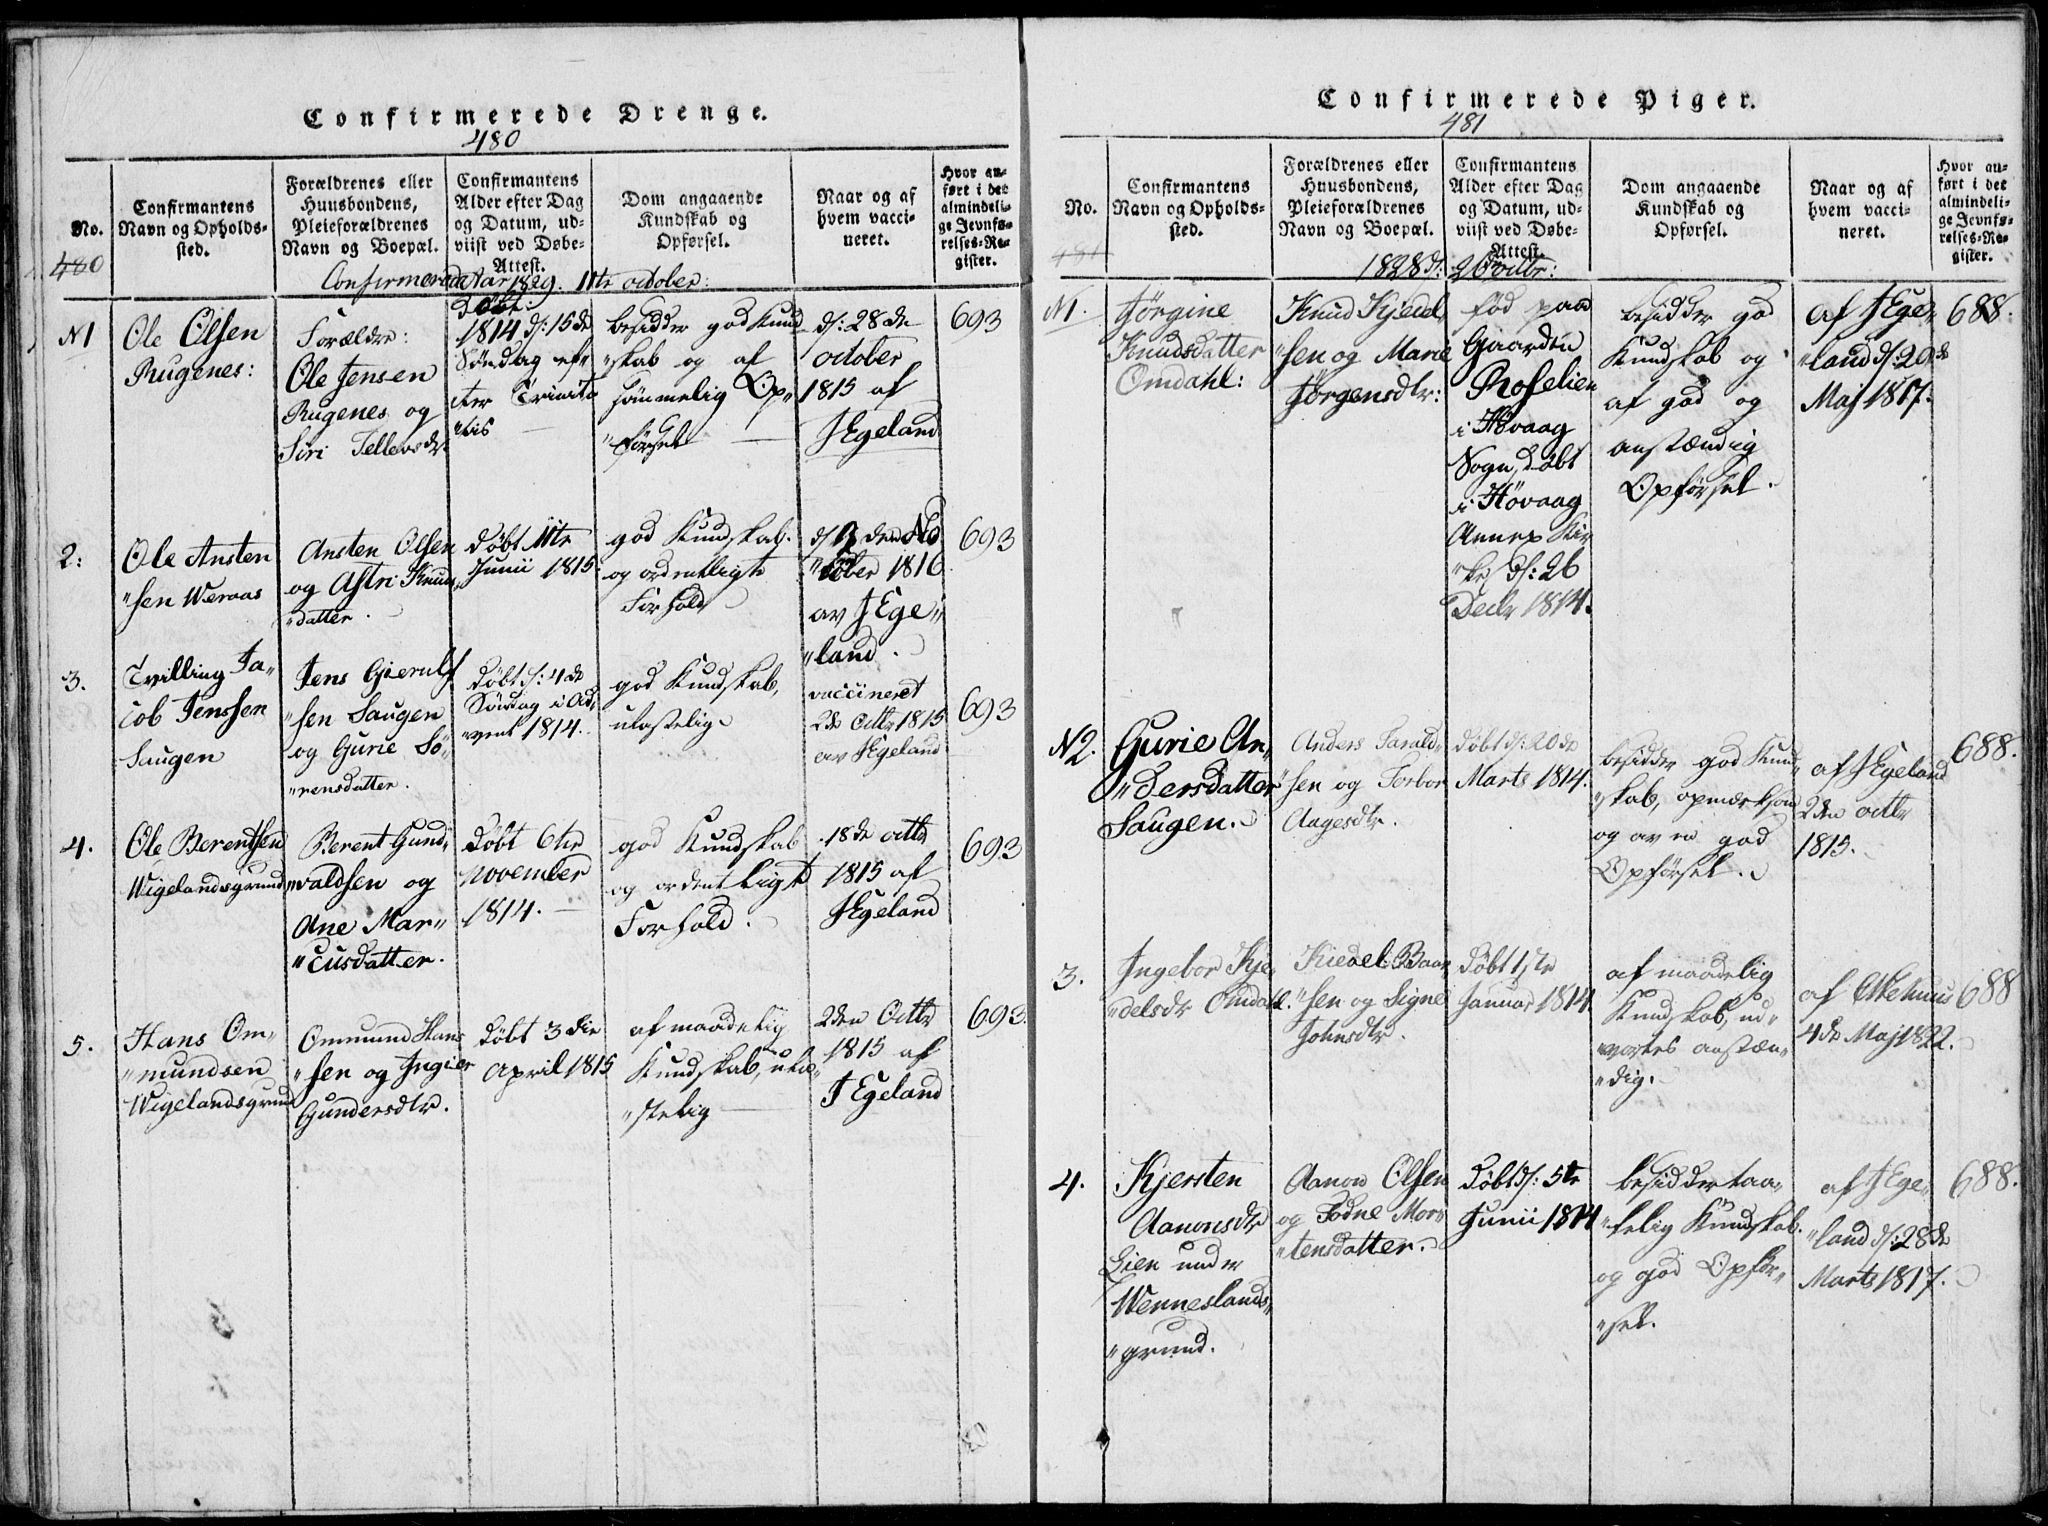 Confirmerede Drenge.
480
No.
Confirmantens
Navn og Opholds-
sted.
Forældrenes eller
Huusbondens,
Pleieforældrenes
Navn og Boepæl.
Confirmantens
Alder efter Dag
og Datum, ud-
viist ved Døbe-
Attest.
Dom angaaende
Kundskab og
Opførsel.
Naar og af
hvem vacci-
neret.
Hvor an-
ført i det
almindeli-
ge Jevnfø-
relses-Re-
gister.
480
Confirmerede Aar 1829. 11te october:
N1
Ole Olsen
Rugenes:
Forældre:
Ole Jensen
Rugenes og
Siri Tellevsdr
Døbt:
1814 d: 15de
Søndag ef-
ter Trinita
"tis
besidder god Kund
"skab og af
sömmelig Op"
"førsel
d: 28de
october
1815 af
J Egeland
693
2:
Ole Ansten
"sen Weraas
Ansten Olsen
og Astri Knuds
"datter.
Døbt 11te
Junii 1815
god Kundskab.
og ordentligt
Forhold
"tober 1816
av J Ege"
"land.
693
3.
Tvilling Ja-
cob Jenssen
Saugen
Jens Gjerulf
"sen Saugen
og Gurie Sö-
"rensdatter.
Døbt d: 4de
Søndag i Ad-
"vent 1814.
god Kundskab,
ulastelig
vaccineret
2de Octbr 1815
av J Egeland
693
4.
Ole Berentsen
Wigelandsgrund
Berent Gund-
"valdsen og
Ane Mar"
"cusdatter.
Døbt 6te
November
1814.
god Kundskab
og ordentligt
Forhold.
18de octbr
1815 af
J Egeland
693
5.
Hans Om-
"mundsen
Wigelandsgrund
Ommund Hans
"sen og Ingier
Gundersdtr.
Døbt 3die
April 1815
af maadelig
Kundskab, ula-
"stelig
2den Octbr
1815 af
J Egeland
693.
Confirmerede Piger.
481
No.
Confirmantens
Navn og Opholds-
sted.
Forældrenes eller
Huusbondens,
Pleieforældrenes
Navn og Boepæl.
Confirmantens
Alder efter Dag
og Datum, ud-
viist ved Døbe-
Attest.
Dom angaaende
Kundskab og
Opførsel.
Naar og af
hvem vacci-
neret.
Hvor an-
ført i det
almindeli-
ge Jevnfø-
relses-Re-
gister.
481
1828 d: 26 octbr:
N1.
Jørgine
Knudsdatter
Omdahl:
Knud Kjedel
"sen og Marie
Jørgensdtr:
fød paa
Gaarden
Roselien
i Høvaag
Sogn, døbt
i Høvaag
Annex Kir
"ke d: 26
Decbr 1814.
besidder god
Kundskab og
af god og
anstændig
Opførsel.
af J Ege"
"land d: 20de
Maj 1817.
688.
N2.
Gurie An"
"dersdatter
Saugen.
Anders Tarald-
"sen og Torbor
Aagesdtr.
Døbt d: 20de
Marts 1814.
besidder god Kund-
"skab, opmærksom
og av en god
Opførsel.
af J Egeland
2den octbr
1815.
688.
3.
Ingebor Kje-
"delsdr Omdahl.
Kiedel Baar
"sen og Signe
Johnsdtr.
Døbt 1ste
Januar 1814
af maadelig
Kundskab, ud-
vortes anstæn-
"dig.
4de Maj 1822.
688
4.
Kjersten
Aanonsdtr
Lien under
Wenneslands-
"grund.
Aanon Olsen
og Todne Mor"
"tensdatter.
Døbt d: 5te
Junii 1814
besidder taa-
"lelig Kundskab.
og god Opfør-
"sel.
af J Ege-
"land d: 28de
Marts 1817.
688.